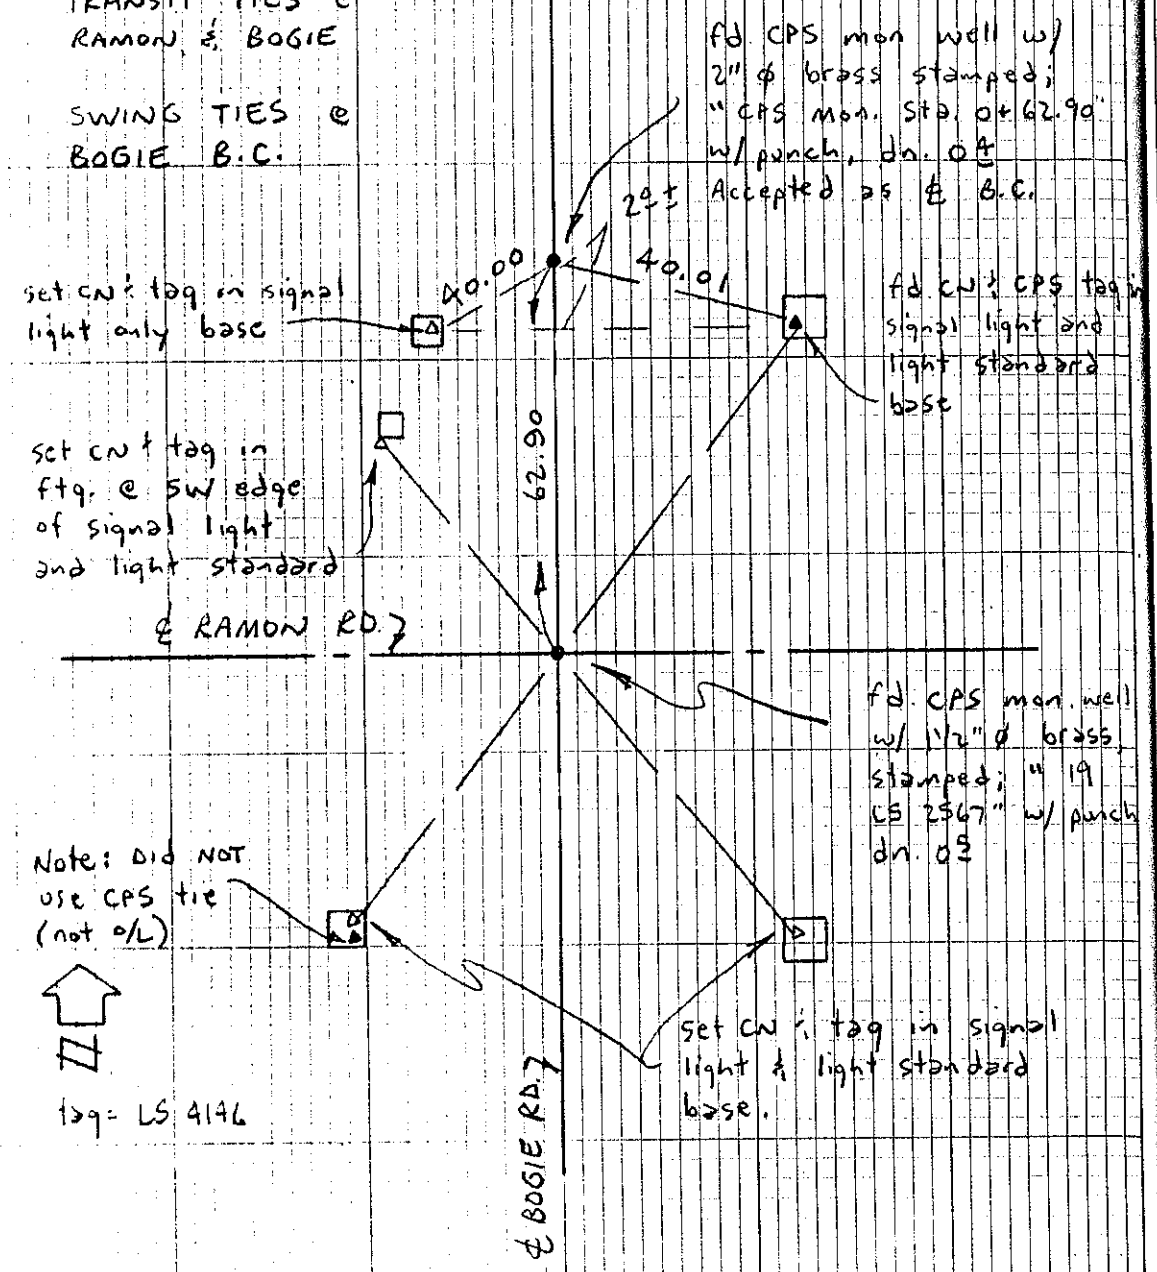 TRANSIT TIES @
RAMON & BOGIE
SWING TIES @
BOGIE B.C.
fd CPS mon well w/
2" ϕ brass stamped;
"CPS Mon. Sta. 0+62.90"
w/ punch, dn. 0.4
Accepted as ℄ B.C.
2.4±
40.00
40.01
set CN & tag in signal
light only base
fd. CN & CPS tag in
signal light and
light standard
base
62.90
set CN & tag in
ftg. @ SW edge
of signal light
and light standard
℄ RAMON RD.
fd. CPS mon. well
w/ 1 1/2" ϕ brass,
stamped; " 19
LS 2567" w/ punch
dn. 0.5
Note: Did NOT
use CPS tie
(not o/L)
N
tag = LS 4146
set CN & tag in signal
light & light standard
base.
℄ BOGIE RD.